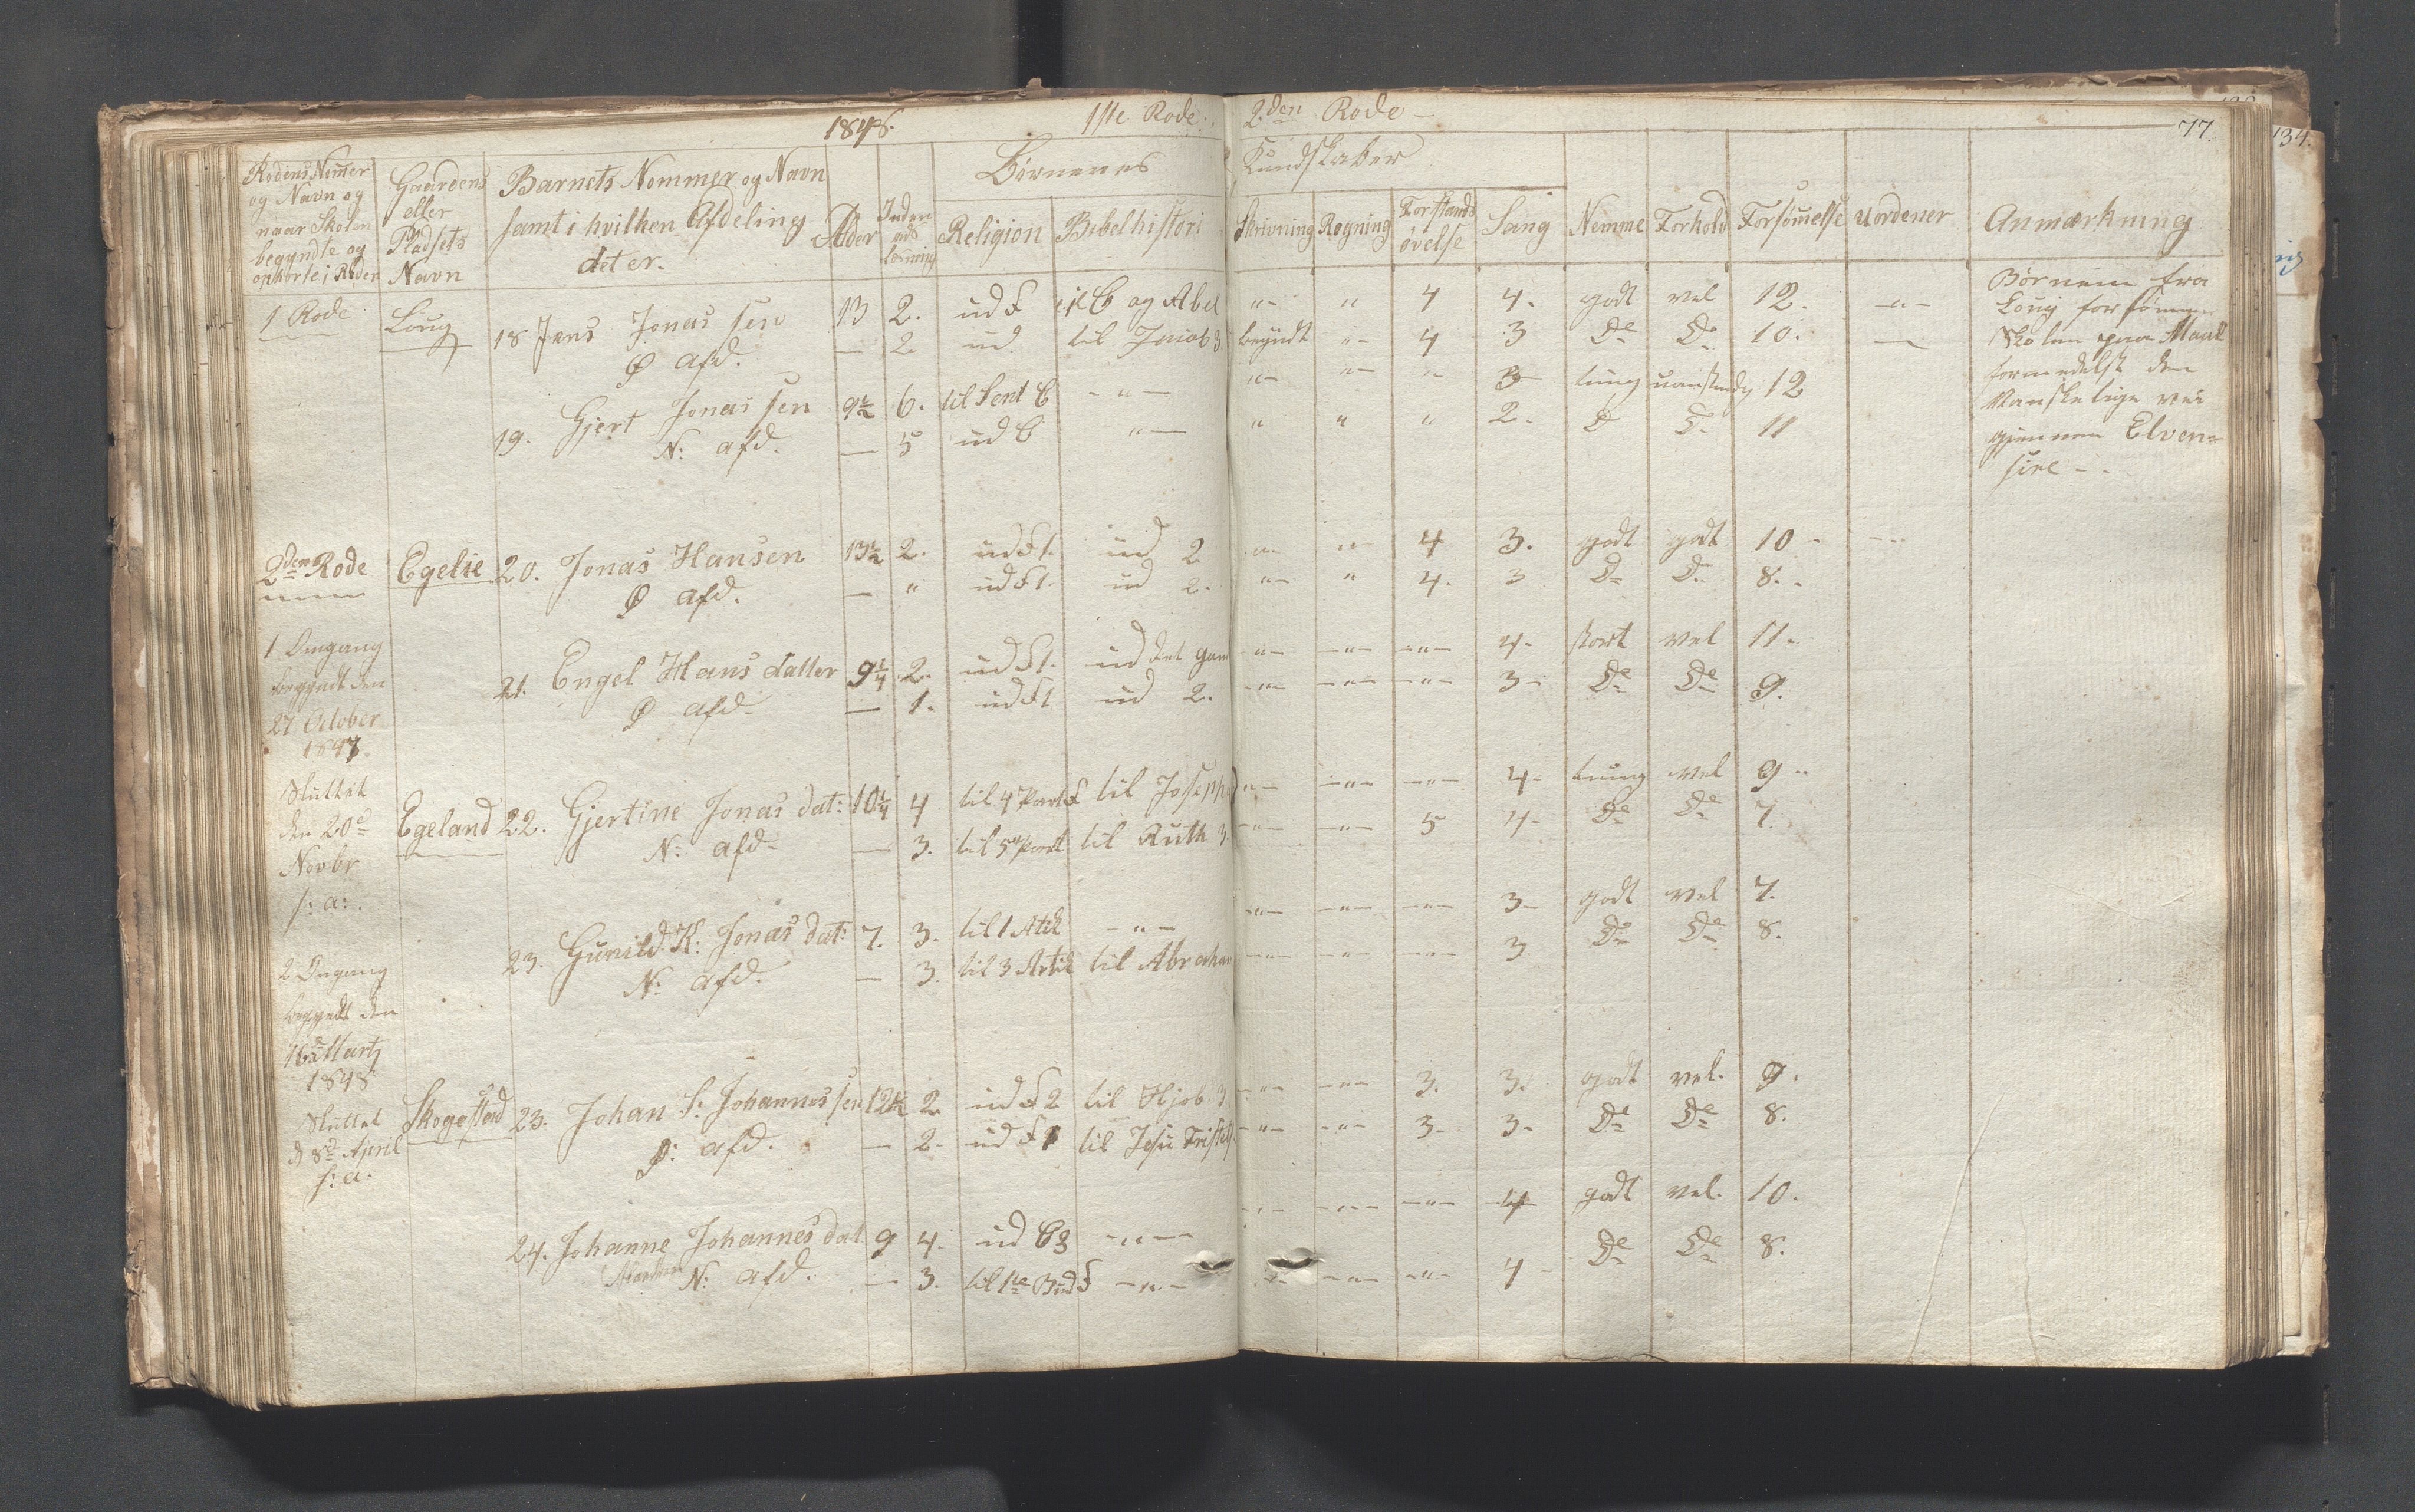 1848. 1ste Rode. 2den Rode 77.
134.
Rodens Numer og Navn og naar Skolen begyndte og ophørte i Roden
Gaardens eller Pladsets Navn
Barnets Nommer og Navn samt i hvilken Afdeling det er.
Alder
Inden ads læsning
Børnenes Kundskaber
Religion Bibelhistori Skrivning Regning Forstands øvelse Sang Nemme Forhold Forsømmelse Uordener Anmærkning
1 Rode Loug 18 Jens Jonas sen 13 2. ud F til C og Abel " " 4 4. godt vel 12. "
Ø afd. — 2 ud til Jacob 3. begyndt " 4 3 Do Do 10. —
19. Gjert Jonas sen 9½ 6. til Sent C " " " " 3 tung uanstendig 12
N: afd. — 5 ud C " " " " 2. Do Do 11
Børnene fra
Loug forsømmer
Skolen paa Maal
formedelst den
Vanskelige vei
gjennem Elven
sire
2den Rode Egelie 20. Jonas Hansen 13½ 2. ud F 1. ud 2 " " 4 3. godt godt 10 "
Ø afd. — " ud F 1. ud 2. " " 4. 3 Do Do 8.
1 Omgang
begyndt den
27 October
1847
Sluttet
den 20de
Novbr
s: a:
21. Engel Hans datter 9¼ 2. ud F 1. ud det gam " " " 4. stort vel 11.
Ø afd. — 1. ud F 1 ud 2. " " " 3 Do Do 9.
Egeland 22. Gjertine Jonas dat: 10¼ 4 til 4 Part F til Joseph " " " 4 tung vel 9
N: afd. — 3. til 5 Part til Ruth 3. " " 5 4 Do Do 7.
23. Gunild K: Jonas dat: 7. 3. til 1 Artik " " " " 3 godt vel 7.
N: afd. — 3. til 3 Artik til Abraham " " " 3 Do Do 8.
2 Omgang
begyndt den
16de Martz
1848
Sluttet
d 8de April
s: a.
Skogestad 23. Johan S: Johannes sen 12½ 2. ud F 2 til Hjob 3 " " 3. 3. godt vel. 9.
Ø: afd. — 2. ud F 1 til Jesu Fristels " " 3. 3. Do Do 8.
24. Johanne Johannes dat 9 4. ud C 3 " " " " 4 godt vel. 10.
N: afd. — 3. til 1te Bud F " " " " 4 Do Do 8.